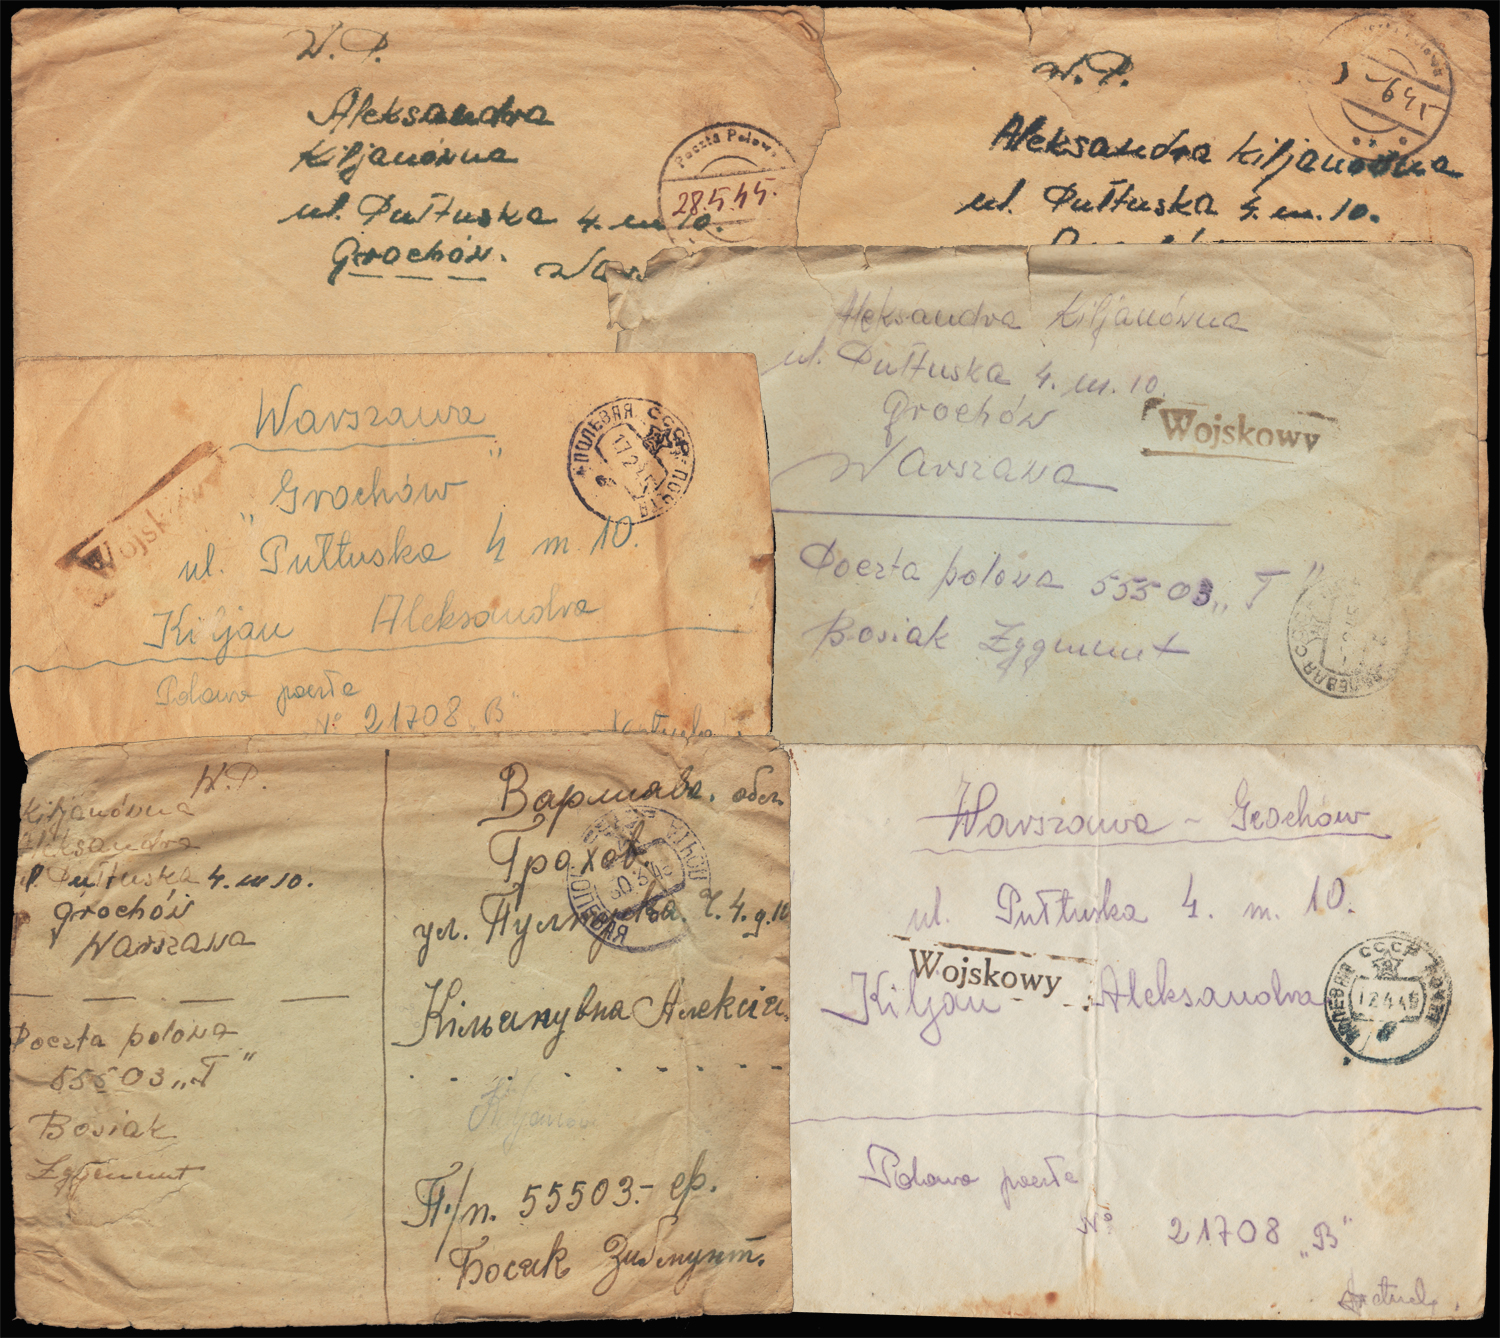 W. P.
Aleksandra
Kiljanówna
ul. Pułtuska 4. m 10.
Grochów.
Poczta Polowa
28.5.45.
W. P.
Aleksandra Kiljanówna
ul. Pułtuska 4. m. 10.
6 45
Aleksandra Kiljanówna
ul. Pułtuska 4. m. 10
Grochów
Warszawa
Wojskowy
Poczta polowa 55503 „T”
Bosiak Zygmunt
Warszawa
„Grochów”
ul. Pułtuska 4 m 10.
Kiljan Aleksandra
Polowa poczta
№ 21708 „B”
Wojskowy
ПОЛЕВАЯ СССР ПОЧТА
17 2 45
W. P.
Kiljanówna
Aleksandra
ul. Pułtuska 4. m 10.
Grochów
Warszawa
Poczta polowa
55503 „T”
Bosiak
Zygmunt
Варшава. обл
Грахов.
ул. Пултуска. Ч. 4. д. 10
Кільанувна Алекса
Kiljanów
П/п. 55503.- ер.
Босяк Зигмунт.
ПОЛЕВАЯ ПОЧТА
Warszawa - Grochów
ul. Pułtuska 4. m. 10.
Wojskowy
Kiljan Aleksandra
ПОЛЕВАЯ СССР ПОЧТА
12 4 45
Polowa poczta
№ 21708 „B”